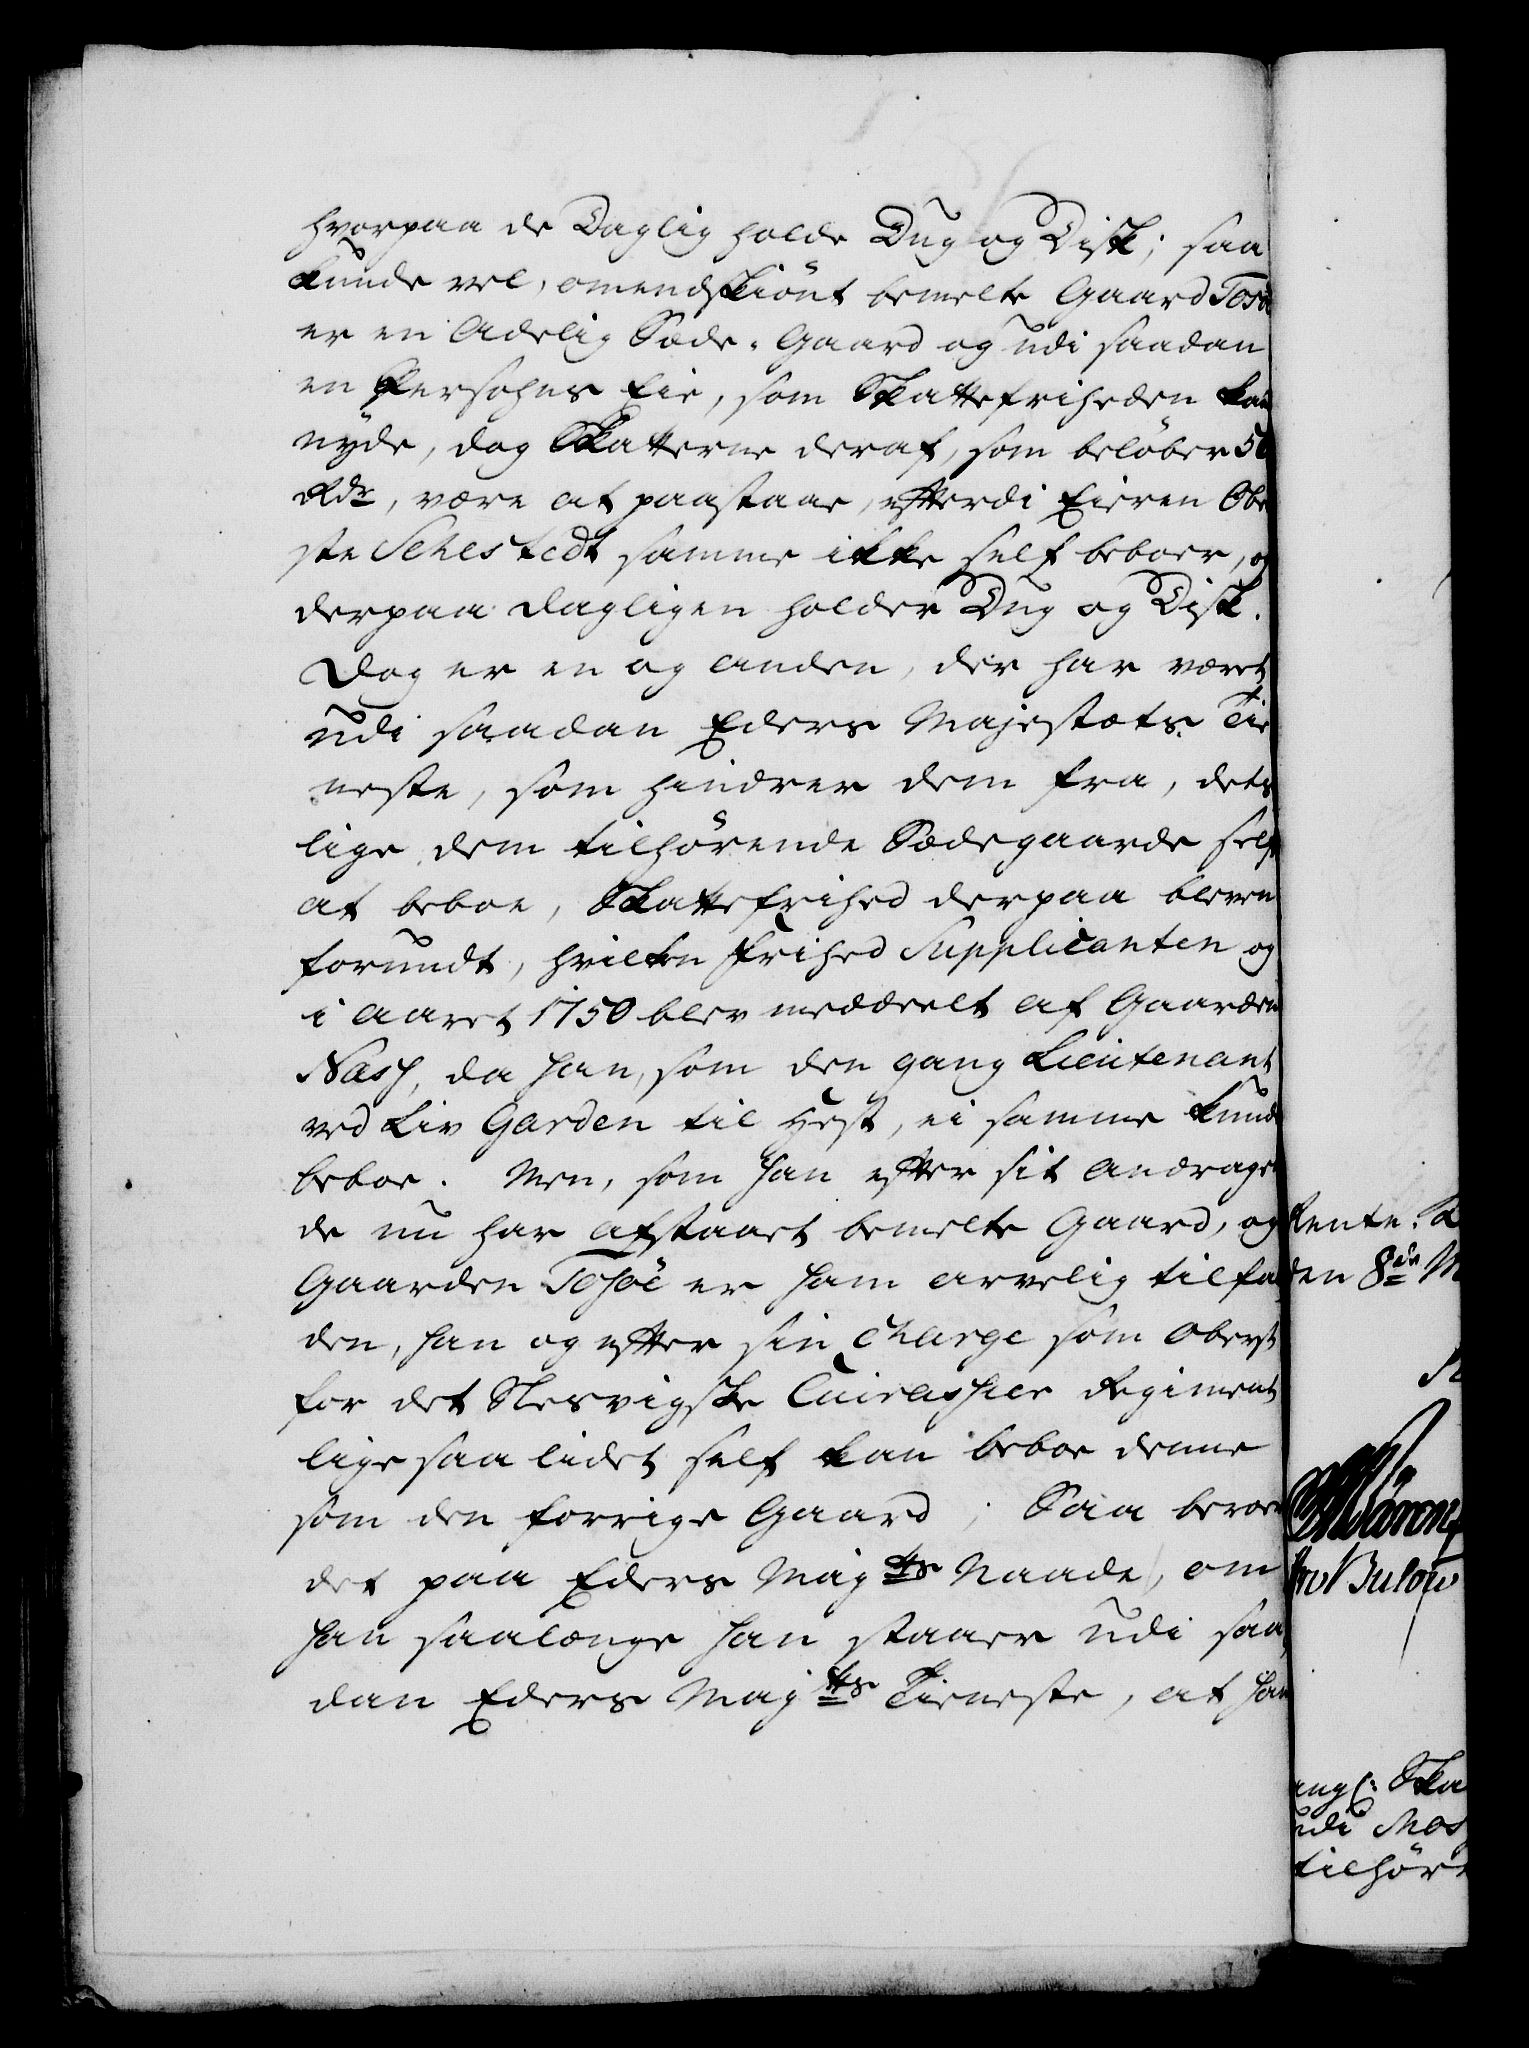 hvorpaa de Daglig holde Dug og Disk; saa
kunde vel, omendskiönt bemelte Gaard
er en Adelig Sæde-Gaard og udi saadan
en Persohns Eie, som Skattefriheden kan
nyde, dog Skatterne deraf, som beløber 50
Rdr, være at paastaae, efterdi Eieren Obe
ste Sehestedt samme ikke self beboer, og
derpaa dagligen holder Dug og Disk.
Dog er en og anden, der har været
udi saadan Eders Majestæts Tie
neste, som hindrer dem fra, des
lige dem tilhørende Sædegaarde self
at beboe, Skattefrihed derpaa bleven
forundt, hvilken Frihed Supplicanten og
i Aaret 1750 blev meddeelt af Gaarden
Næsÿ, da han, som den gang Lieutenant
ved Liv Garden til Hest, ei samme kunde
beboe. Men, som han efter sit andragen
de nu har afstaaet bemelte Gaard, og
Gaarden Tosöe er ham arvelig tilfal
den, han og efter sin Charge som Oberst
for det Slesvigske Cuirassier Regiment
lige saa lidet self kan beboe denne
som den forrige Gaard; Saa beroer
det paa Eders Mayts Naade, om
han saalænge han staaer udi saa
dan Eders Majts Tieneste, at han
Rente:
den 8de M
Bulow
Ska
udi Mos
tilhör